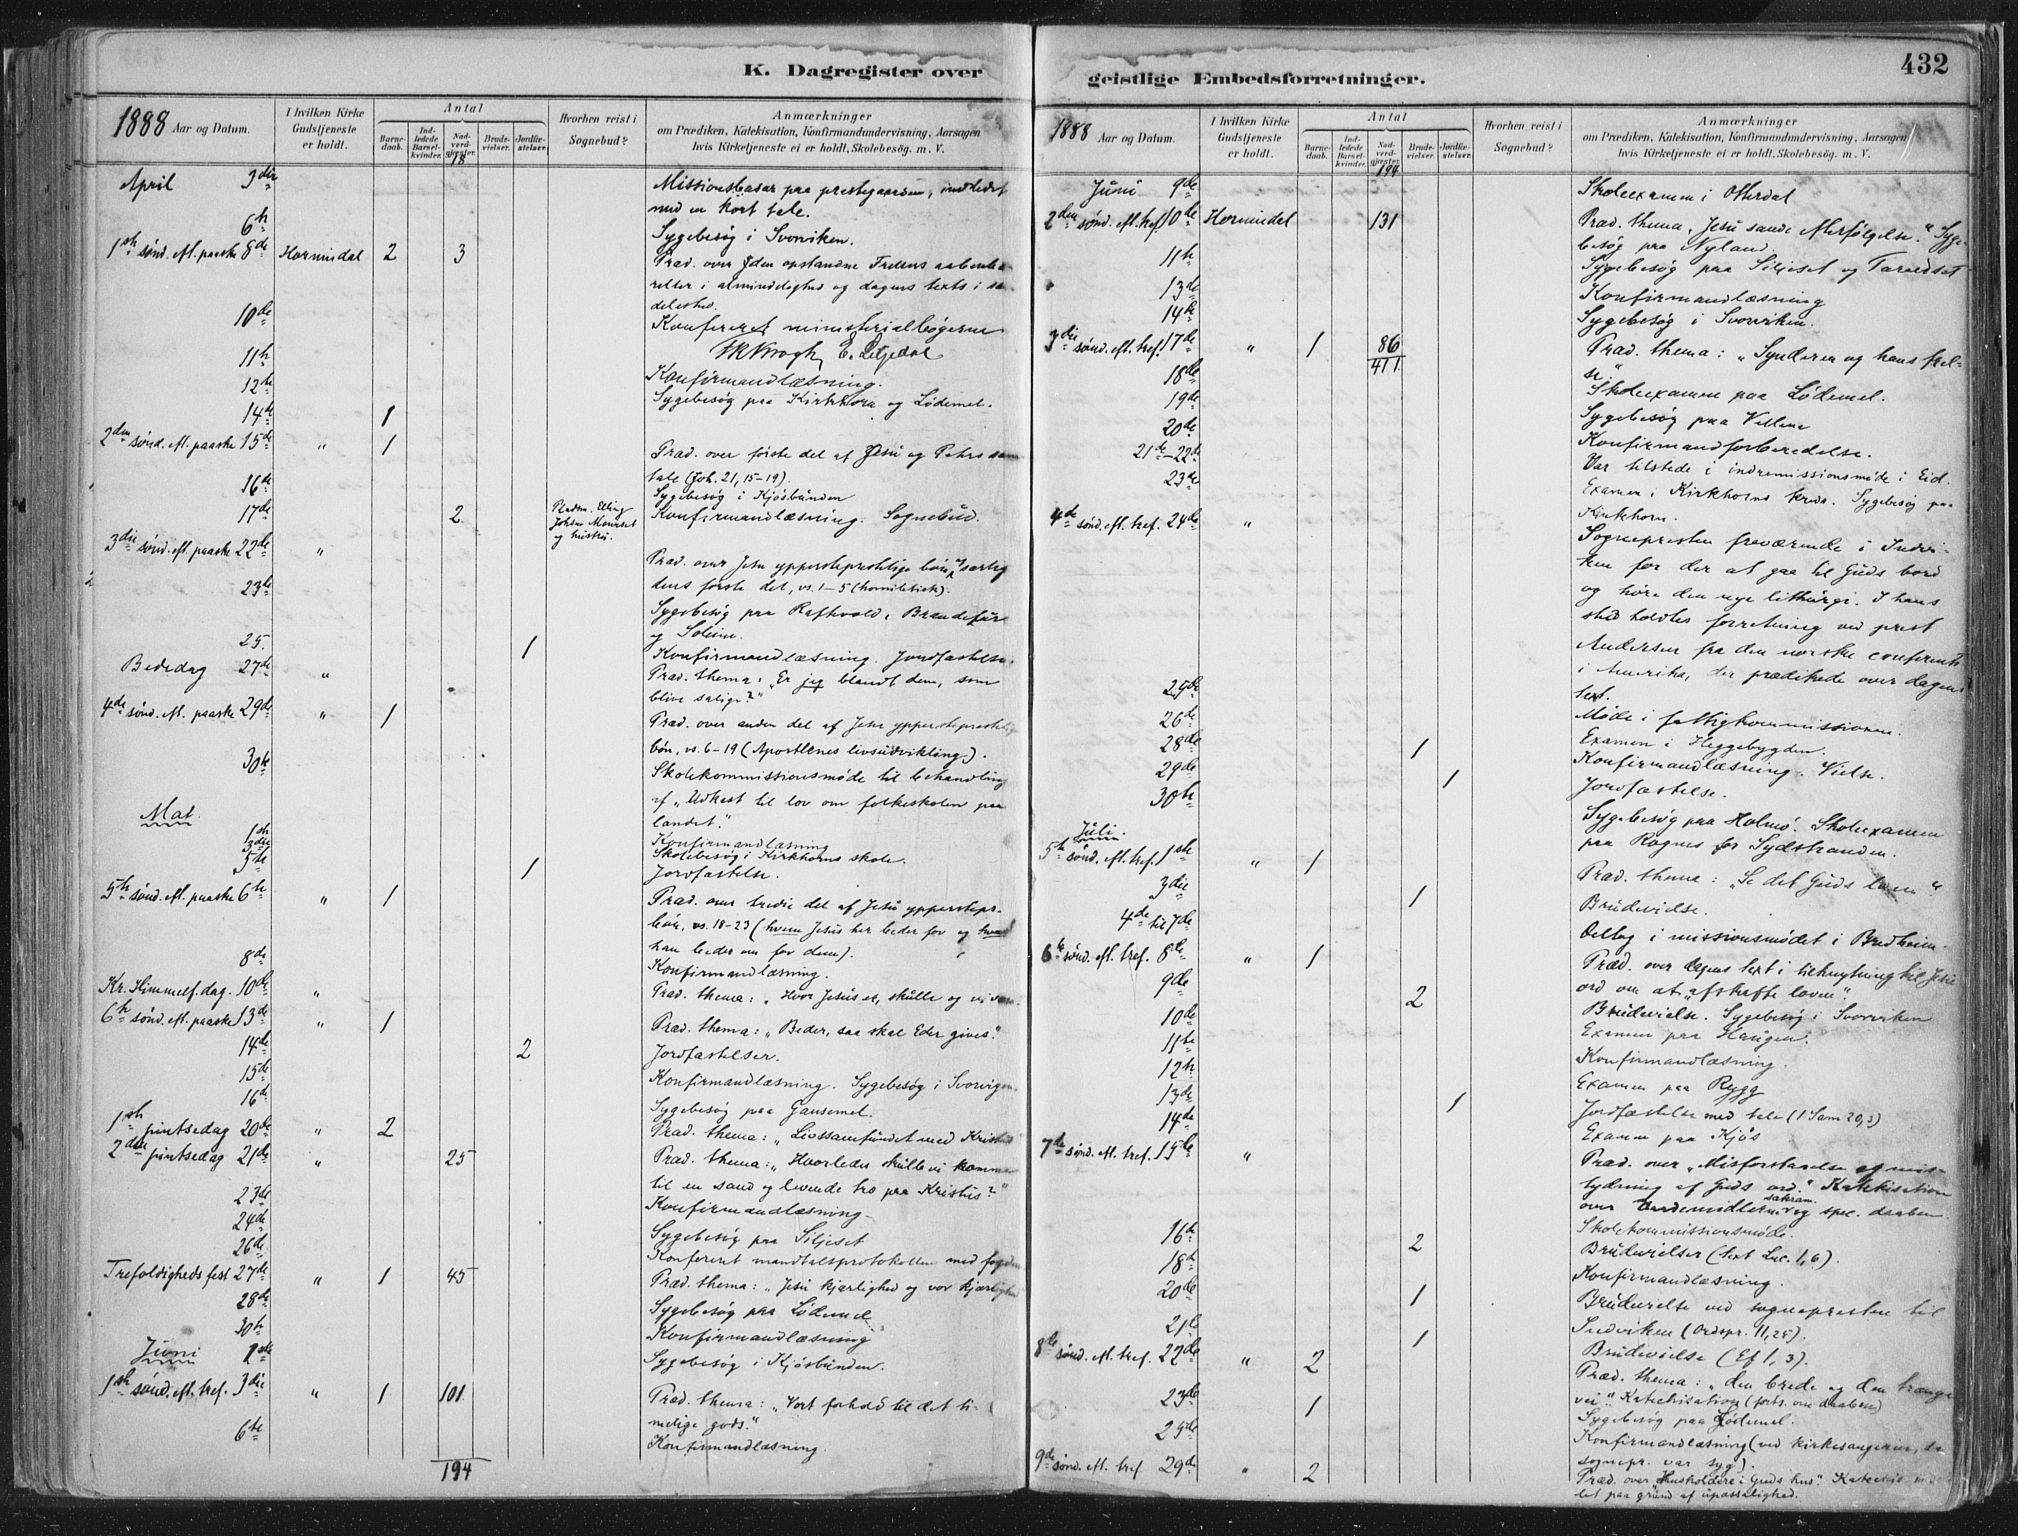 K. Dagregister over
1888 Aar og Datum.
I hvilken Kirke Gudstjeneste er holdt.
Antal
Barnedaab.
Indledede Barselkvinder.
Nadverdgjester.
Brudevielser.
Jordfæstelser.
Hvorhen reist i Sognebud?
Anmærkninger
om Prædiken, Katekisation, Konfirmandundervisning, Aarsagen
hvis Kirketjeneste ei er holdt, Skolebesøg. m. V.
18
April 3die Missionsbasar paa prestegaarden, indledet
med en kort tale.
6te Sygebesøg i Svorviken.
1ste sønd. eft. paaske 8de Hornindal 2 3 Præd. over den opstandne Frelsers aabenba-
relser i almindelighed og dagens texts i sæ-
deleshed.
10de Konfereret ministerialbøgerne
11te Konfirmandlæsning.
12te Sygebesøg paa Kirkhorn og Lødemel.
14de 1
2den sønd. eft. paaske 15de " 1 Præd. over første del af Jesu og Peters sam-
tale (Joh. 21, 15-19).
16de Sygebesøg i Kjøsbunden
17de 2 Konfirmandlæsning. Sognebud.
og hustru.
3die sønd. eft. paaske 22de " Præd. over Jesu ypperstepræstelige bøn, særlig
dens første del, vs. 1-5 (homiletisk).
23de Sygebesøg paa Raftevold, Brandefur
og Soleim.
25. 1 Konfirmandlæsning. Jordfæstelse.
Bededag 27de " Præd. thema: "Er jeg blandt dem, som
blive salige?"
4de sønd. eft. paaske 29de " 1 Præd. over anden del af Jesu ypperstepræstelig
bøn, vs. 6-19 (Apostlenes livsudvikling).
30te Skolekommissionsmøde til behandling
af "Udkast til lov om folkeskolen paa
landet."
Mai.
1ste Konfirmandlæsning
3die Skolebesøg i Kirkhorns skole.
5te 1 Jordfæstelse.
5te sønd. eft. paaske 6te " 1 Præd. over tredie del af Jesu yppersteprs.
bøn, vs. 18-23 (hvem Jesus her beder for og hvad
han beder om for dem).
8de Konfirmandlæsning.
Kr. Himmelf. dag. 10de " Præd. thema: "Hvor Jesus er, skulle og vi være
6te sønd. eft. paaske 13de " 1 Præd. thema: "Beder, saa skal Eder gives".
14de 2 Jordfæstelser.
15de Konfirmandlæsning. Sygebesøg i Svorvigen.
16de Sygebesøg paa Gausemel.
1ste pintsedag 20de " 2 Præd. thema: "Livssamfundet med Kristus
2den pintsedag 21de " 25 Præd. thema: "Hvorledes skulle vi komme
til en sand og levende tro paa Kristus?"
23de Konfirmandlæsning.
24de Sygebesøg paa Siljeset
26de Konfereret mandtalsprotokollen med fogden
Trefoldigheds fest 27de " 1 45 Præd. thema: "Jesu kjærlighed og vor kjærlighed
28de Sygebesøg paa Lødemel
30te Konfirmandlæsning
Juni 1ste Sygebesøg i Kjøsbunden.
1ste sønd. eft. tref. 3die " 1 101 Præd. thema: "Vort forhold til det ti-
melige gods."
6te Konfirmandlæsning.
194
geistlige Embedsforretninger.
432
1888 Aar og Datum.
I hvilken Kirke Gudstjeneste er holdt.
Antal
Barnedaab.
Indledede Barselkvinder.
Nadverdgjester.
Brudevielser.
Jordfæstelser.
Hvorhen reist i Sognebud?
Anmærkninger
om Prædiken, Katekisation, Konfirmandundervisning, Aarsagen
hvis Kirketjeneste ei er holdt, Skolebesøg. m. V.
194
Juni 9de Skoleexamen i Otterdal
2den sønd. eft. tref. 10de Hornindal 131 Præd. thema "Jesu sande Efterfølgelse." Syge-
besøg paa Nyland.
11te Sygebesøg paa Siljeset og
13de Konfirmandlæsning
14de Sygebesøg i Svorviken.
3die sønd. eft. tref. 17de " 1 86 Præd. thema: "Synderen og hans frel-
se."
411
18de Skoleexamen paa Lødemel.
19de Sygebesøg paa
20de Konfirmandforberedelse.
21de-22de Var tilstede i indremissionsmøde i Eid.
23de Examen i Kirkhorns kreds. Sygebesøg paa
Kirkhorn.
4de sønd. eft. tref. 24de " Sognepresten fraværende i Indvi-
ken for der at gaa til Guds bord
og høre den nye lithurgi. I hans
sted holdtes forretning ved prest
Andersen fra den norske conferents
i Amerika, der prædikede over dagens
text.
25de Møde i fattigkommissionen.
26de Examen i Heggebygden.
28de 1 Konfirmandlæsning. Vielse.
29de 1 Jordfæstelse.
30te Sygebesøg paa Holmø. Skoleexamen
paa Rognes for Sydstranden.
Juli.
5te sønd. eft. tref. 1ste " 1 Præd. thema: "Se det Guds lam"
3die 1 Brudevielse.
4de til 7de Deltog i missionsmødet i Bredheim.
6te sønd. eft. tref. 8de " 1 Præd. over dagens text i tilknytning til Jesu
ord om at "afskaffe loven".
9de 2 Brudevielse. Sygebesøg i Svorviken
10de Examen paa Haugen.
11te Konfirmandlæsning.
12te Examen paa Rygg
13de 1 Jordfæstelse med tale (1 Sam 20,3)
14de Examen paa Kjøs
7de sønd. eft. tref. 15de " Præd. over "Misforstaaelse og mis-
tydning af Guds ord." Katekisation
over sakram. og spec. daaben
16de Skolekommissionsmøde.
2 Brudevielser (text Luc. 1,6).
18de Konfirmandlæsning.
20de 1 Brudevielse ved sognepresten til
Indviken (Ordspr. 11,25).
21de 1 Brudevielse (Ef 1, 3).
8de sønd. eft. tref. 22de " 2 Præd. thema: "den brede og den trange
vei." Katechisation (forts. om daaben)
23de 1 Sygebesøg paa Lødemel.
25de Konfirmandlæsning (ved kirkesangeren, da
sognepr. var syg).
9de sønd. eft. tref. 29de " 2 Præd. over "Husholdere i Guds hus." Katechis.
let paa grund af upasselighed.